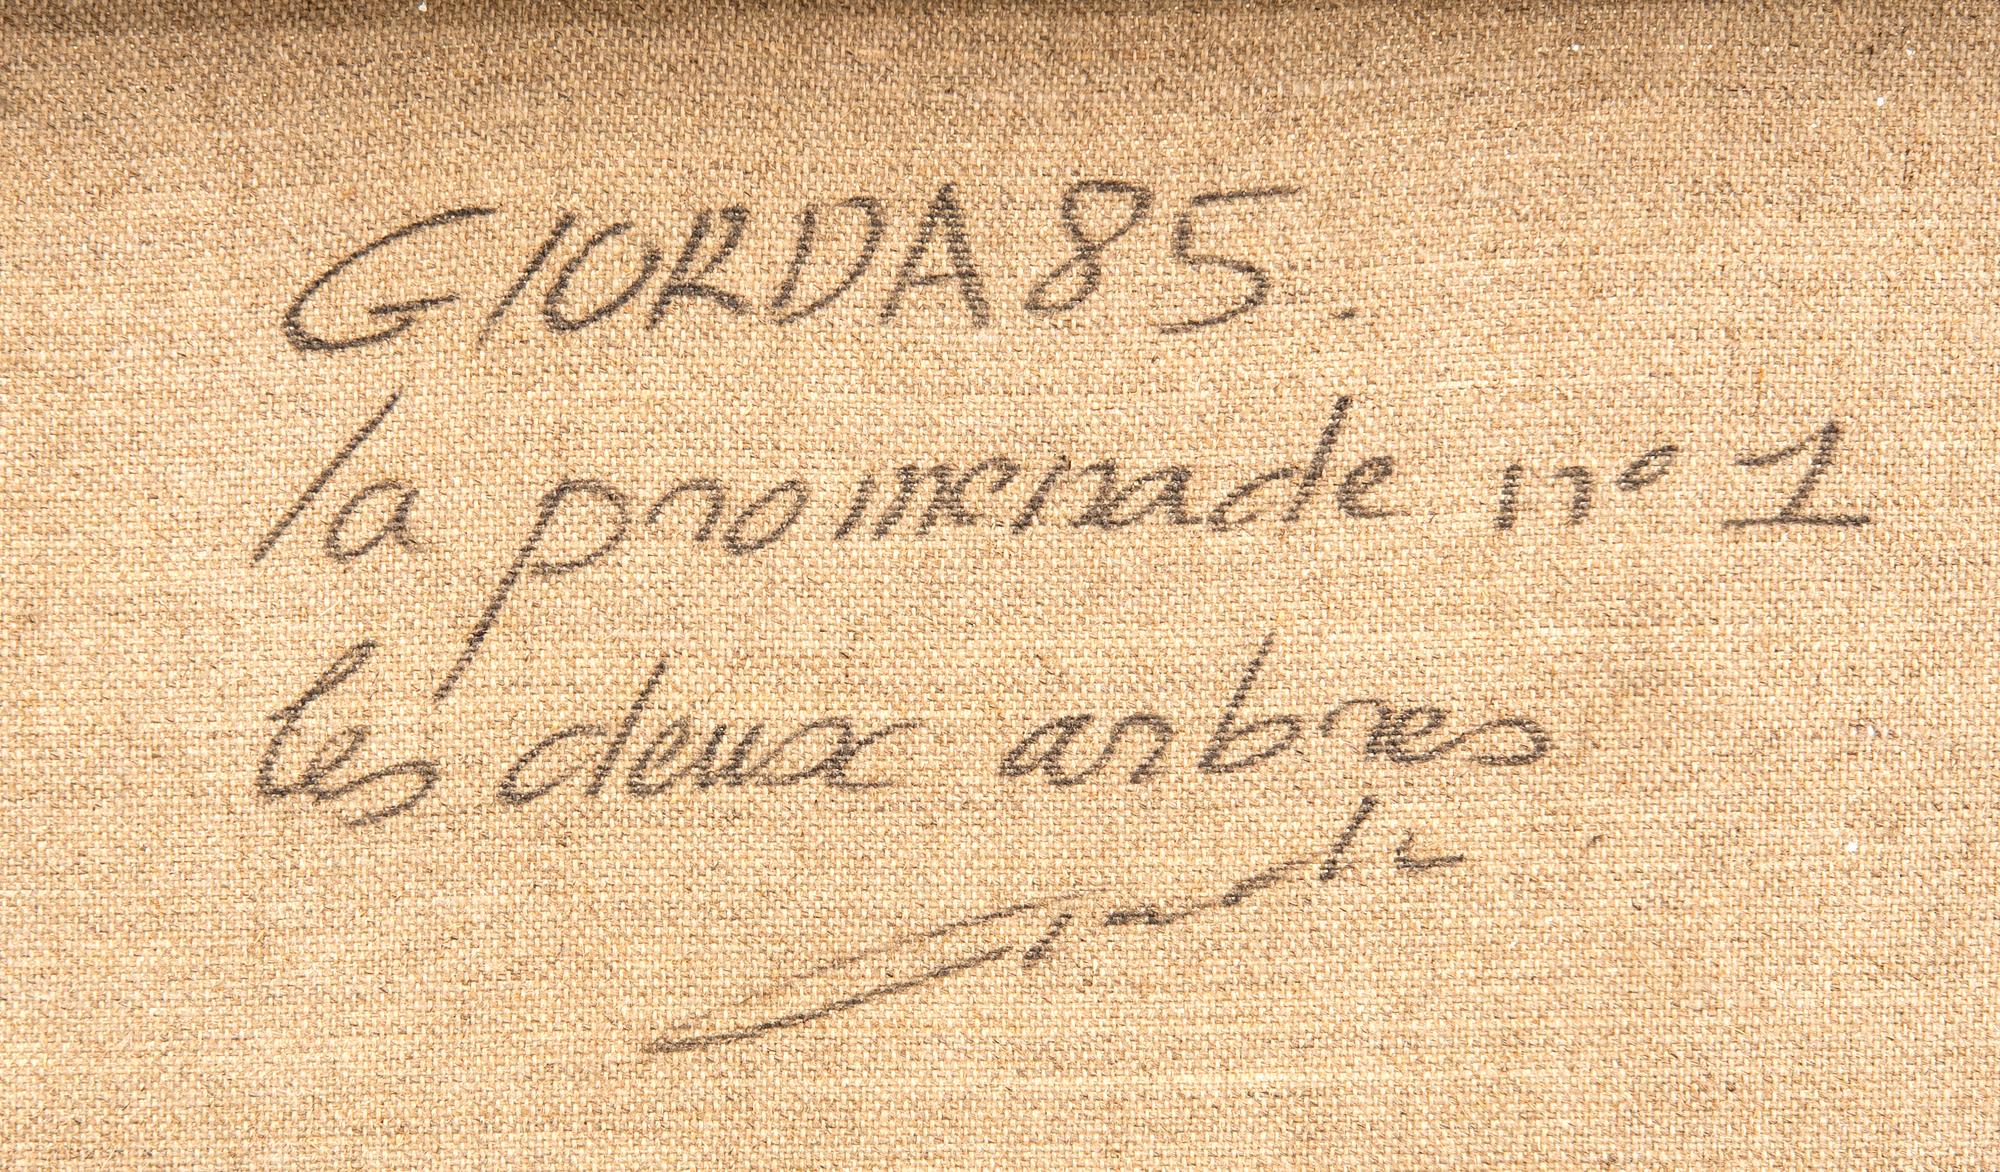 GIORDA 85.
la promenade n° 1
les deux arbres